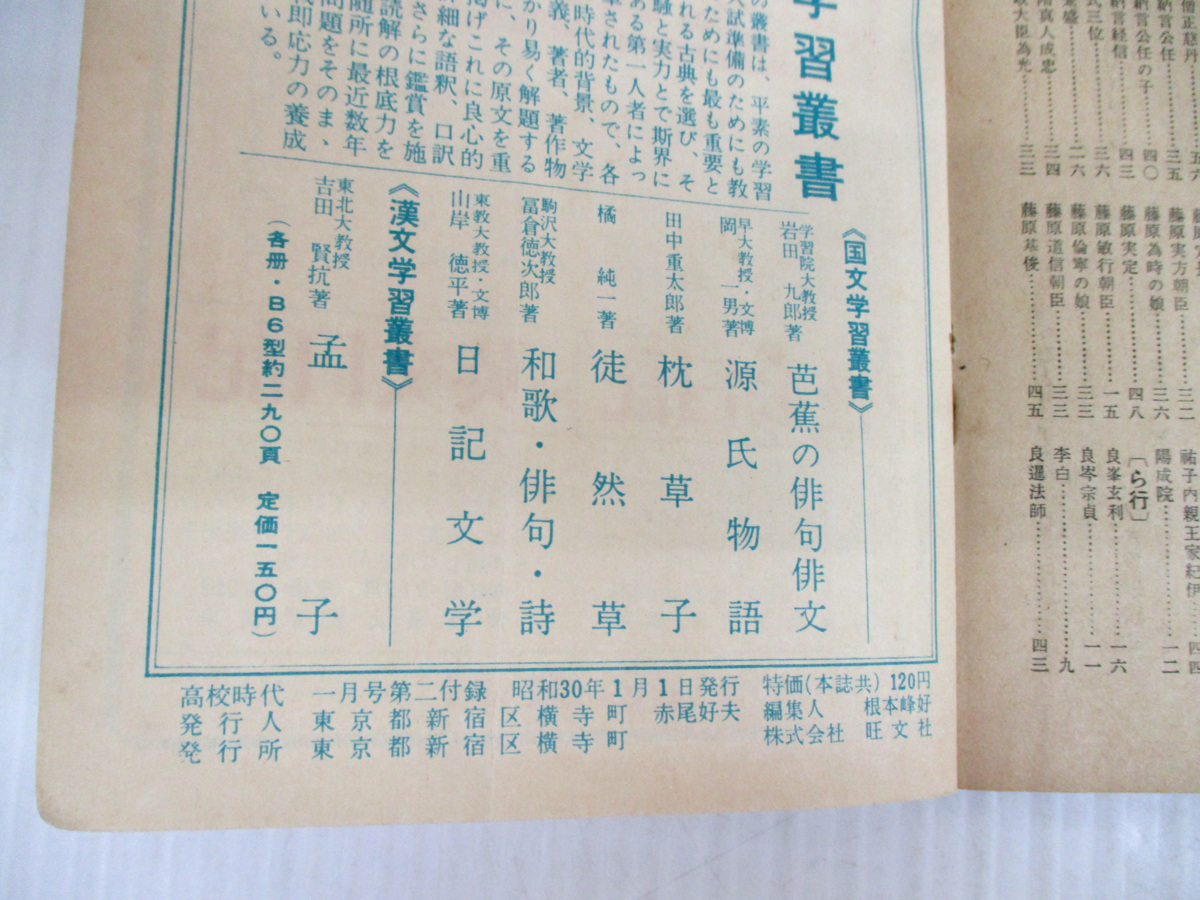 納言公任……三五
納言公任の子……四〇
納言経信……四三
式三位……三六
兼盛……二六
階真人成忠……三四
政大臣為光……三三
藤原実方朝臣……三二
藤原為時の娘……三六
藤原実定……四八
藤原敏行朝臣……一五
藤原倫寧の娘……三三
藤原道信朝臣……三三
藤原基俊……四五
祐子内親王家紀伊
陽成院……一二
〔ら行〕
良峯玄利……一六
良岑宗貞……一一
李白……九
良暹法師……四三
学習叢書
の叢書は、平素の学習
入試準備のためにも教
ためにも最も重要と
れる古典を選び、そ
騒と実力とで斯界に
ある第一人者によっ
筆されたもので、各
時代的背景、文学
義、著者、著作物
かり易く解題する
に、その原文を重
掲げこれに良心的
詳細な語釈、口訳
さらに鑑賞を施
読解の根底力を
随所に最近数年
問題をそのまゝ
即応力の養成
いる。
《国文学習叢書》
学習院大教授 岩田 九郎著 芭蕉の俳句俳文
早大教授・文博 岡 一男著 源氏物語
田中重太郎著 枕草子
橘 純一著 徒然草
駒沢大教授 冨倉徳次郎著 和歌・俳句・詩
東教大教授・文博 山岸 徳平著 日記文学
《漢文学習叢書》
東北大教授 吉田 賢抗著 孟子
（各冊・B6型約二九〇頁 定価一五〇円）
高校時代 一月号第二付録 昭和30年1月1日発行 特価(本誌共)120円
発行人 東京都新宿区横寺町 赤尾好夫 編集人 根本峰好
発行所 東京都新宿区横寺町 株式会社 旺文社